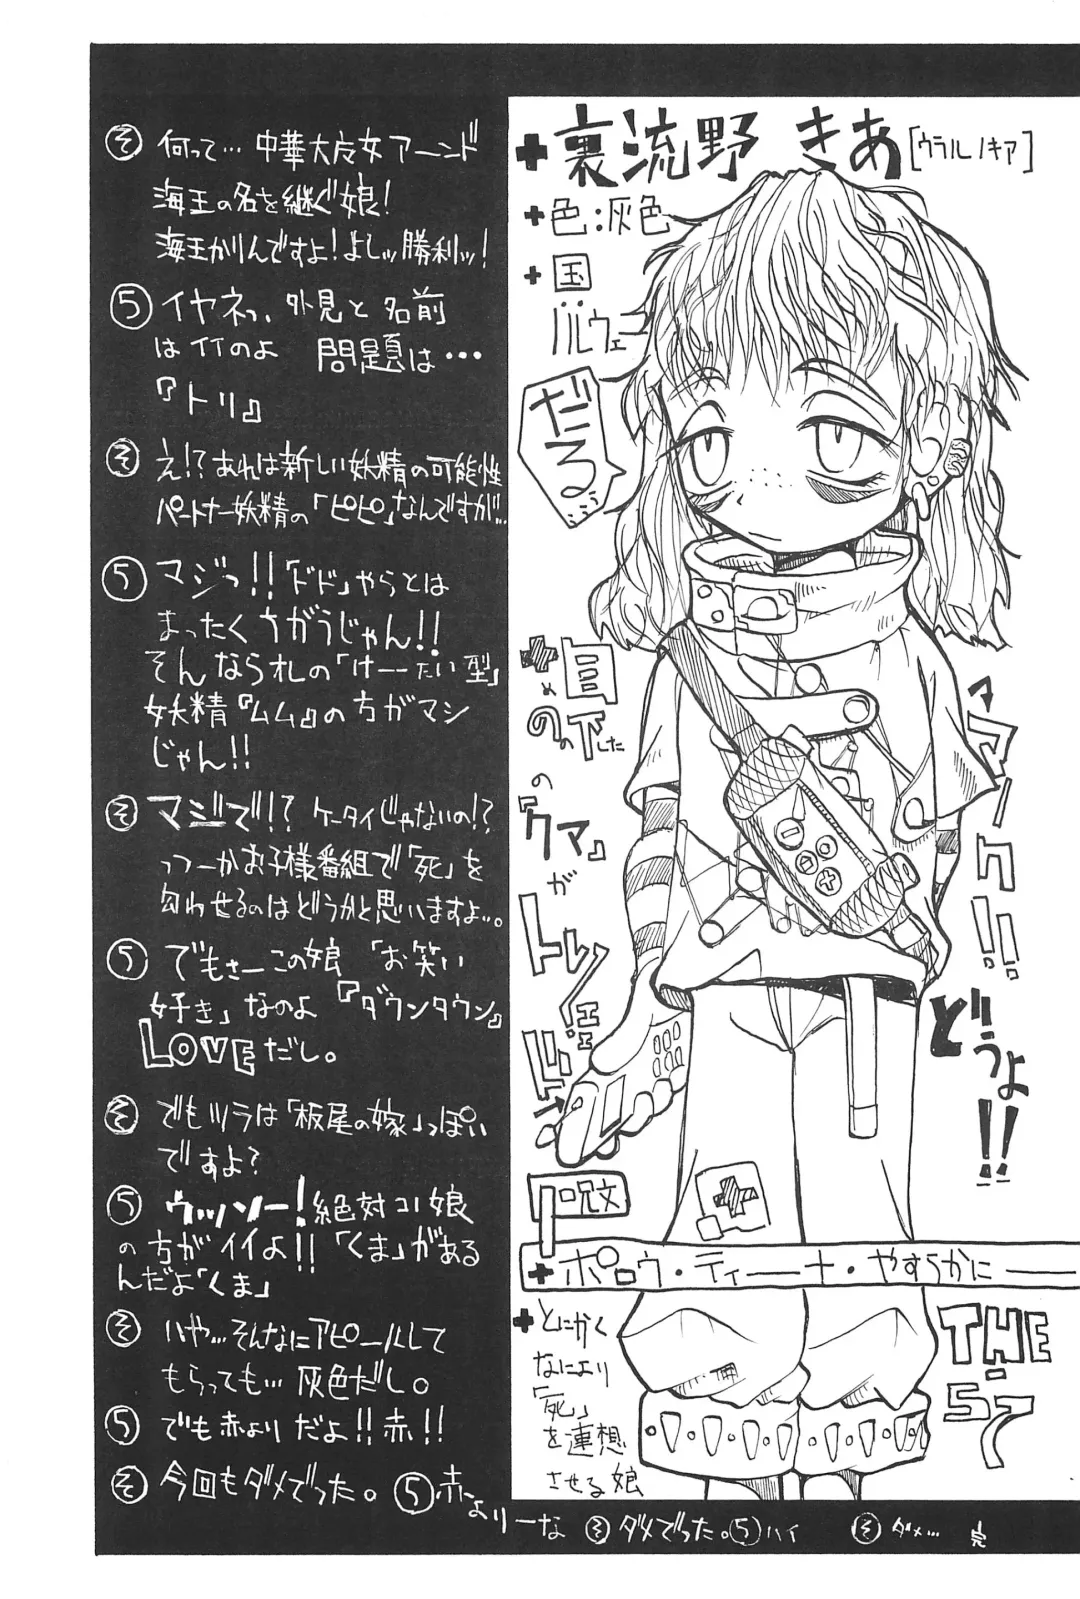 そ 何って… 中華大好女アーンド
海王の名を継ぐ娘!
海王かりんですよ!よしッ勝利ッ!
ら イヤネっ、外見と名前
はイイのよ 問題は…
『トリ』
そ え!?あれは新しい妖精の可能性
パートナー妖精の「ピピ」なんですが…
ら マジっ!!「ドド」やらとは
まったくちがうじゃん!!
そんならオレの「けーたい型」
妖精『ムム』の方がマシ
じゃん!!
そ マジで!?ケータイじゃないの!?
っつーかお子様番組で「死」を
匂わせるのはどうかと思いますよ…。
ら でもさーこの娘 「お笑い
好き」なのよ『ダウンタウン』
LOVEだし。
そ でもツラは「板尾の嫁」っぽい
ですよ?
ら ウッソー!絶対コノ娘
の方がイイよ!!「くま」がある
んだよ「くま」
そ いや…そんなにアピールして
もらっても…灰色だし。
ら でも赤よりだよ!!赤!!
そ 今回もダメでった。 ら 赤よりーな そ ダメでった。 ら ハイ そ ダメ… 完
+裏流野 きあ[ウラルノキア]
+色:灰色
+国:ノルウェー
だるぅ
+目の下の
『クマ』が
トレェェド
マァーク!!
どうよ!!
呪文
+ポロウ・ティーナ・やすらかにー
+とにかく
なにより
「死」
を連想
させる娘
THE